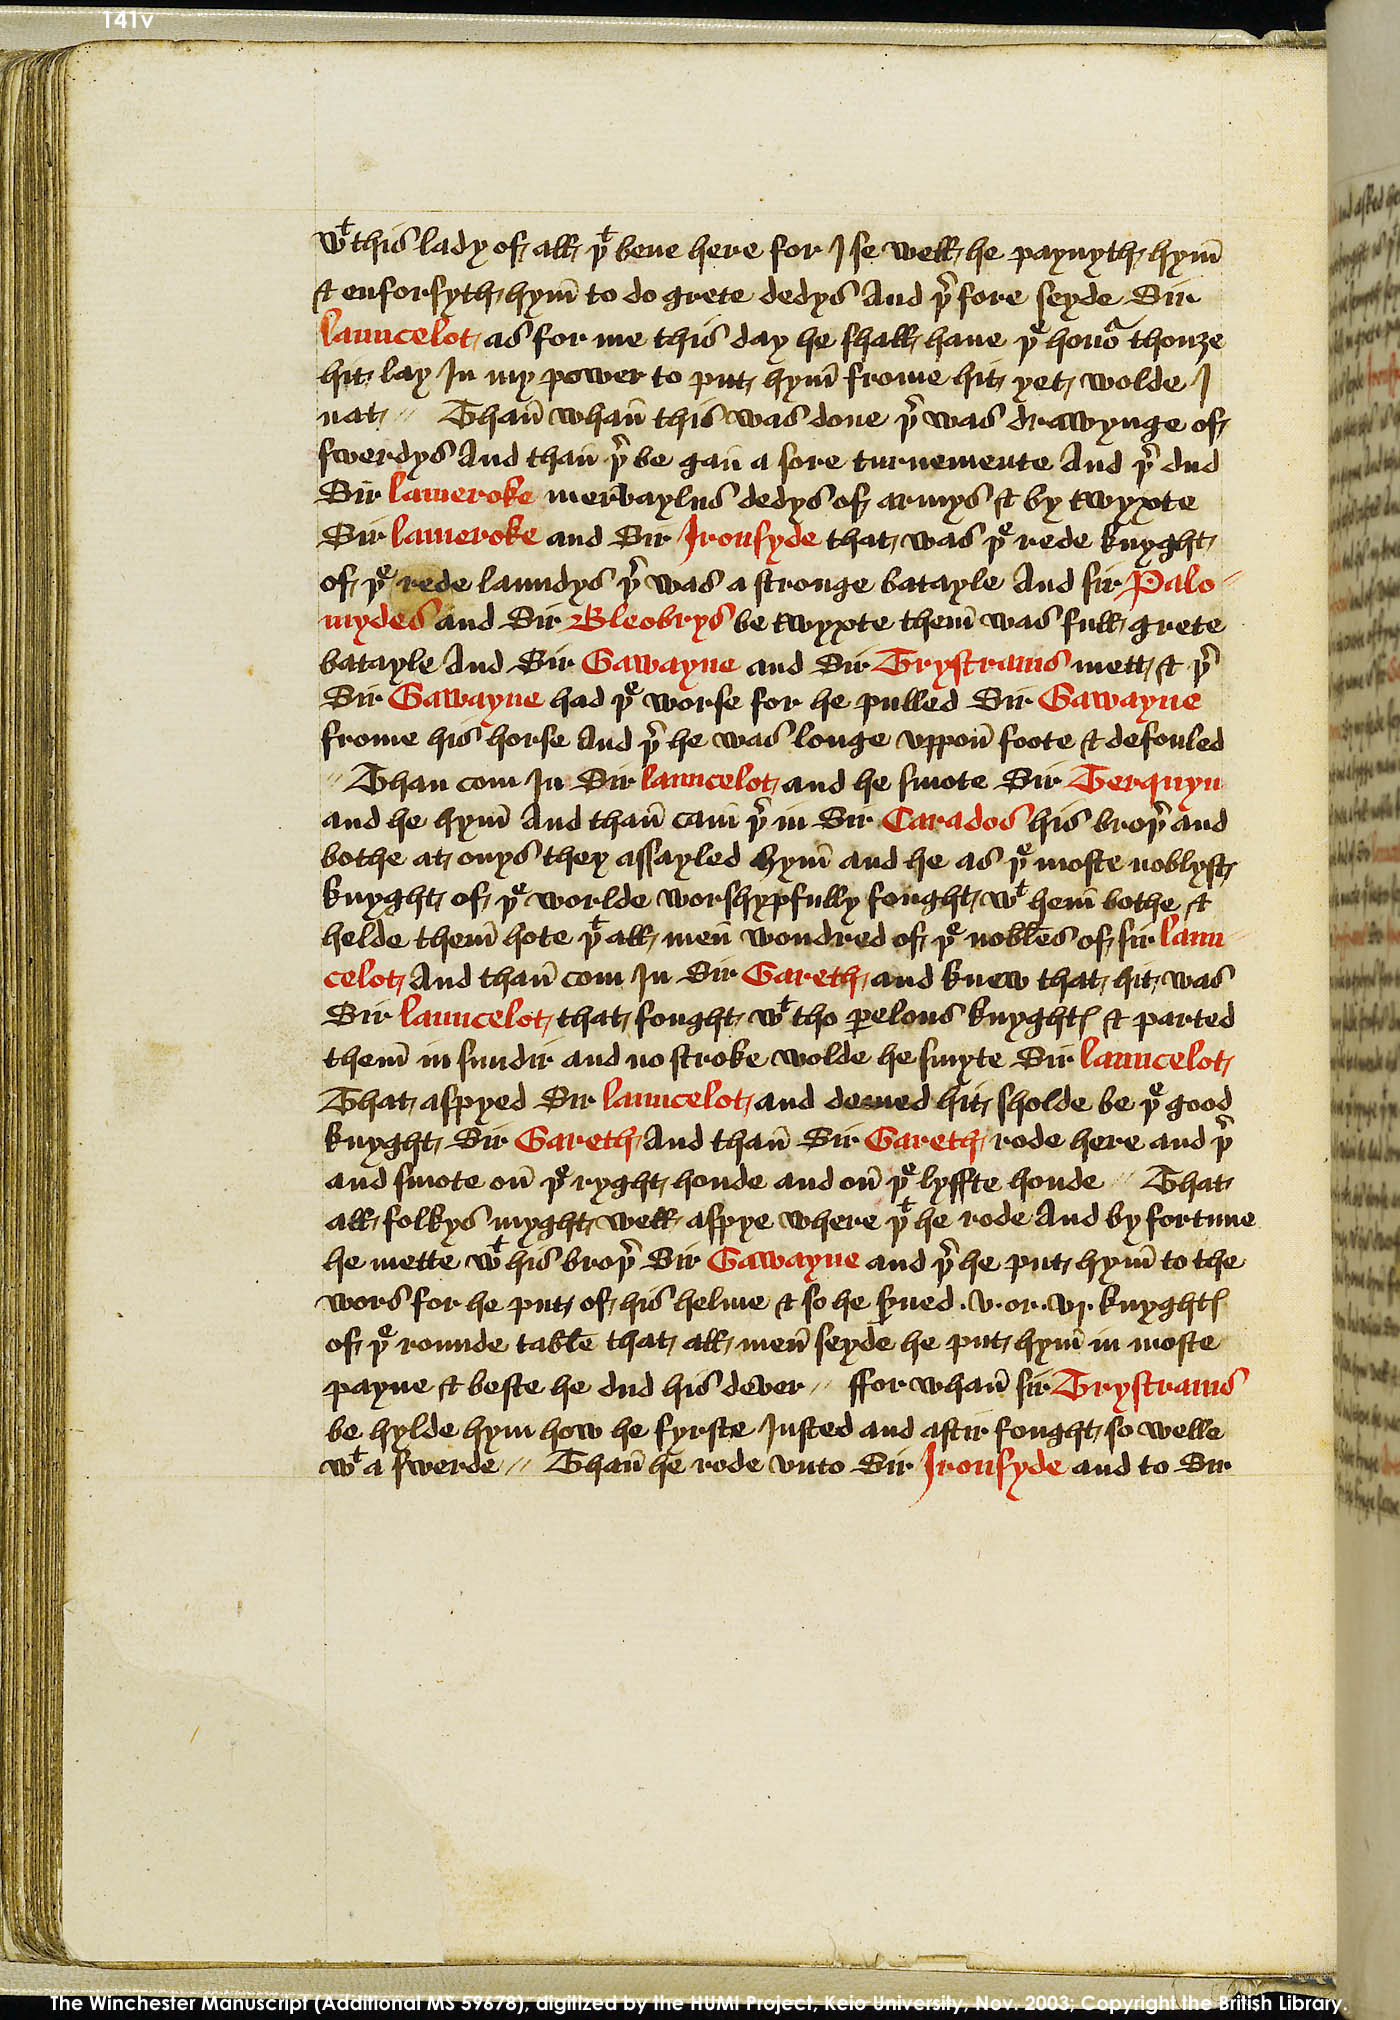 141v
wᵗ this lady of all þᵗ bene here for I se well he paynyth hym̄
& enforsyth hym̄ to do grete dedys And þʳfore seyde Sir
launcelot as for me this day he shall haue þᵉ honoʳ thouȝe
hit lay In my power to put hym̄ frome hit yet wolde I
nat // Than̄ whan̄ this was done þʳ was drawynge of
swerdys And than̄ þʳ be gan̄ a sore turnemente And þʳ dud
Sir lameroke mervaylus dedys of armys & by twyxte
Sir lameroke and Sir Ironsyde that was þᵉ rede knyght
of þᵉ rede laundys þʳ was a stronge batayle And sir Palo
mydes and Sir Bleobrys be twyxte them̄ was full grete
batayle And Sir Gawayne and Sir Trystrams mett & þʳ
Sir Gawayne had þᵉ worse for he pulled Sir Gawayne
frome his horse And þʳ he was longe vppon̄ foote & defouled
// Than com In Sir launcelot and he smote Sir Terquyn
and he hym̄ And than̄ cam̄ þʳ in Sir Carados his broþʳ and
bothe at onys they assayled hym̄ and he as þᵉ moste noblyst
knyght of þᵉ worlde worshypfully fought wᵗ hem̄ bothe &
helde them̄ hote þᵗ all men̄ wondred of þᵉ nobles of sir laun
celot And than̄ com In Sir Gareth and knew that hit was
Sir launcelot that fought wᵗ tho ꝑelous knyghtꝭ & parted
them̄ in sundir and no stroke wolde he smyte Sir launcelot
That aspyed Sir launcelot and demed hit sholde be þᵉ good
knyght Sir Gareth And than̄ Sir Gareth rode here and þʳ
and smote on̄ þᵉ ryght honde and on̄ þᵉ lyffte honde // That
all folkys myght well aspye where þᵗ he rode And by fortune
he mette wᵗ his broþʳ Sir Gawayne and þʳ he put hym̄ to the
wors for he put of his helme & so he s̄ued .v. or .vj. knyghtꝭ
of þᵉ rounde table that all men̄ seyde he put hym̄ in moste
payne & beste he dud his dever // ffor whan̄ sir Trystrams
be hylde hym how he fyrste Iusted and aftir fought so welle
wᵗ a swerde // Than̄ he rode vnto Sir Ironsyde and to Sir
The Winchester Manuscript (Additional MS 59678), digitized by the HUMI Project, Keio University, Nov. 2003; Copyright the British Library.